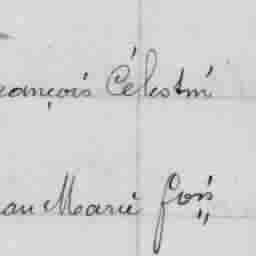 rançois Célestin
ean Marie frois